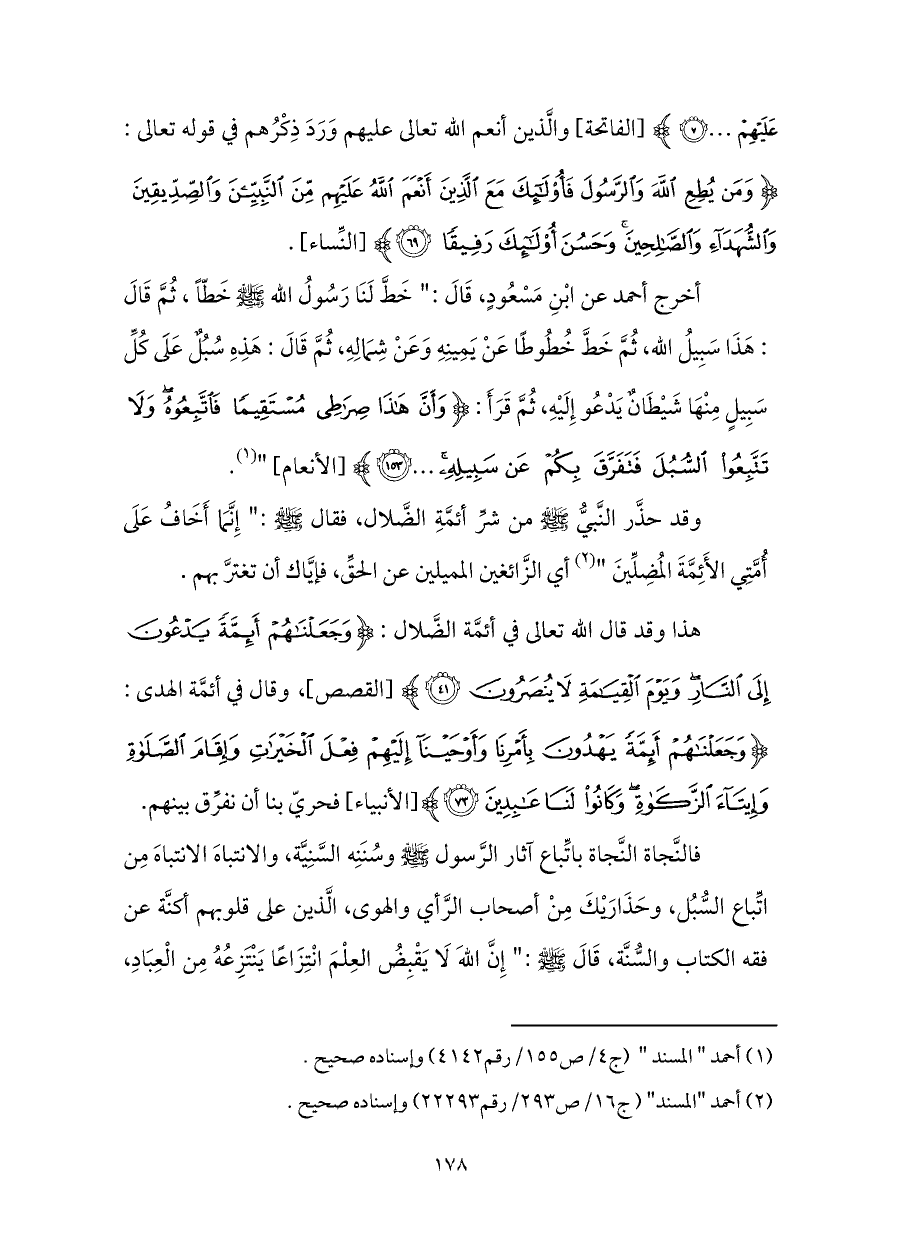 عَلَيۡهِمۡ ...۝٧ ﴾ [الفاتحة] والَّذين أنعم الله تعالى عليهم وَرَدَ ذِكْرُهم في قوله تعالى :
﴿ وَمَن يُطِعِ ٱللَّهَ وَٱلرَّسُولَ فَأُوْلَـٰٓئِكَ مَعَ ٱلَّذِينَ أَنۡعَمَ ٱللَّهُ عَلَيۡهِم مِّنَ ٱلنَّبِيِّـۧنَ وَٱلصِّدِّيقِينَ
وَٱلشُّهَدَآءِ وَٱلصَّـٰلِحِينَۚ وَحَسُنَ أُوْلَـٰٓئِكَ رَفِيقًا ۝٦٩ ﴾ [النِّساء] .
أخرج أحمد عن ابْنِ مَسْعُودٍ، قَالَ :" خَطَّ لَنَا رَسُولُ الله ﷺ خَطّاً ، ثُمَّ قَالَ
: هَذَا سَبِيلُ الله، ثُمَّ خَطَّ خُطُوطًا عَنْ يَمِينِهِ وَعَنْ شِمَالِهِ، ثُمَّ قَالَ : هَذِهِ سُبُلٌ عَلَى كُلِّ
سَبِيلٍ مِنْهَا شَيْطَانٌ يَدْعُو إِلَيْهِ، ثُمَّ قَرَأَ : ﴿ وَأَنَّ هَـٰذَا صِرَٰطِى مُسۡتَقِيمًا فَٱتَّبِعُوهُۖ وَلَا
تَتَّبِعُواْ ٱلسُّبُلَ فَتَفَرَّقَ بِكُمۡ عَن سَبِيلِهِۦۚ ...۝١٥٣ ﴾ [الأنعام] "(١).
وقد حذَّر النَّبيُّ ﷺ من شرِّ أئمَّةِ الضَّلال، فقال ﷺ :" إِنَّمَا أَخَافُ عَلَى
أُمَّتِي الأَئِمَّةَ المُضِلِّينَ "(٢) أي الزَّائغين المميلين عن الحقِّ، فإيَّاك أن تغترَّ بهم .
هذا وقد قال الله تعالى في أئمَّة الضَّلال : ﴿ وَجَعَلۡنَـٰهُمۡ أَئِمَّةً يَدۡعُونَ
إِلَى ٱلنَّارِۖ وَيَوۡمَ ٱلۡقِيَـٰمَةِ لَا يُنصَرُونَ ۝٤١ ﴾ [القصص]، وقال في أئمَّة الهدى :
﴿ وَجَعَلۡنَـٰهُمۡ أَئِمَّةً يَهۡدُونَ بِأَمۡرِنَا وَأَوۡحَيۡنَآ إِلَيۡهِمۡ فِعۡلَ ٱلۡخَيۡرَٰتِ وَإِقَامَ ٱلصَّلَوٰةِ
وَإِيتَآءَ ٱلزَّكَوٰةِۖ وَكَانُواْ لَنَا عَـٰبِدِينَ ۝٧٣ ﴾[الأنبياء] فحريّ بنا أن نفرِّق بينهم.
فالنَّجاة النَّجاة باتِّباع آثار الرَّسول ﷺ وسُنَنِه السَّنِيَّة، والانتباهَ الانتباهَ مِن
اتِّباع السُّبُل، وحَذَارَيْكَ مِنْ أصحاب الرَّأي والهوى، الَّذين على قلوبهم أكنَّة عن
فقه الكتاب والسُّنَّة، قَالَ ﷺ :" إِنَّ اللهَ لَا يَقْبِضُ العِلْمَ انْتِزَاعًا يَنْتَزِعُهُ مِن الْعِبَادِ،
(١) أحمد " المسند " (ج٤/ ص١٥٥/ رقم٤١٤٢) وإسناده صحيح .
(٢) أحمد "المسند" ( ج١٦/ ص٢٩٣/ رقم٢٢٢٩٣) وإسناده صحيح .
١٧٨